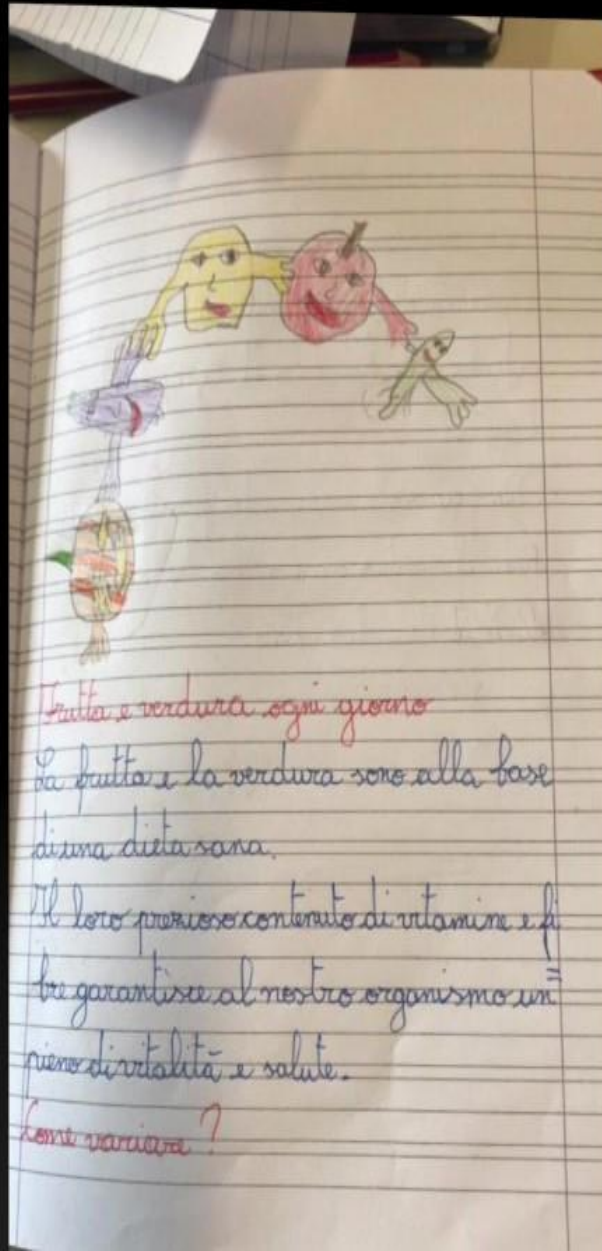 Frutta e verdura ogni giorno
La frutta e la verdura sono alla base
di una dieta sana.
Il loro prezioso contenuto di vitamine e fi
bre garantisce al nostro organismo un
pieno di vitalità e salute.
Come variare?